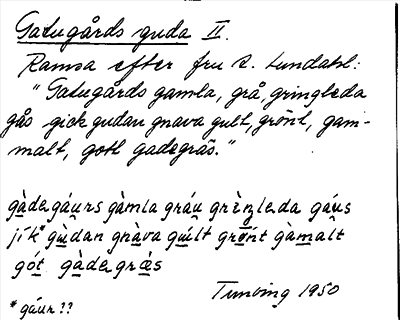 Gatugårds guda II.
Ramsa efter fru E. Lundahl:
"Gatugårds gamla, grå, gringleda
gås gick gudan gnava gult, grönt, gam-
malt, gott gadegräs."
gàde gáu̲rs gàmla gráu̲ grèŋleda gáu̲s
jík* gu̲dan gnàva gu̲lt grö̲nt gàmalt
gót gàde græ̲s
Tunbing 1950
* gáur ??